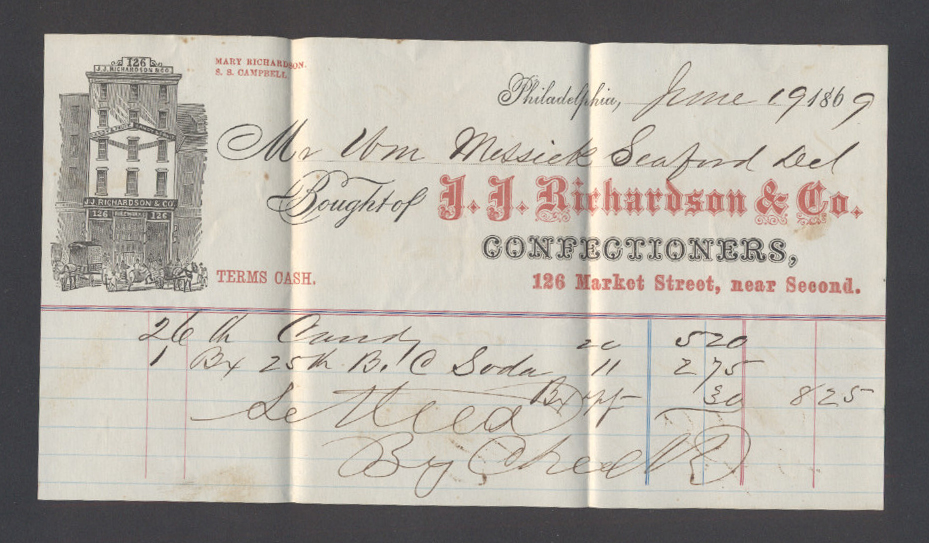 126
J. J. RICHARDSON & CO.
MARY RICHARDSON.
S. S. CAMPBELL.
Philadelphia, June 19 1869
Mr Wm Messick Seaford Del
Bought of J. J. Richardson & Co.
CONFECTIONERS,
126 Market Street, near Second.
J. J. RICHARDSON & CO.
126 126
TERMS CASH.
26 lb Candy 20 5 20
1 Bx 25 lb B. C Soda 11 2 75
Bx 30 8 25
Settled
By Check